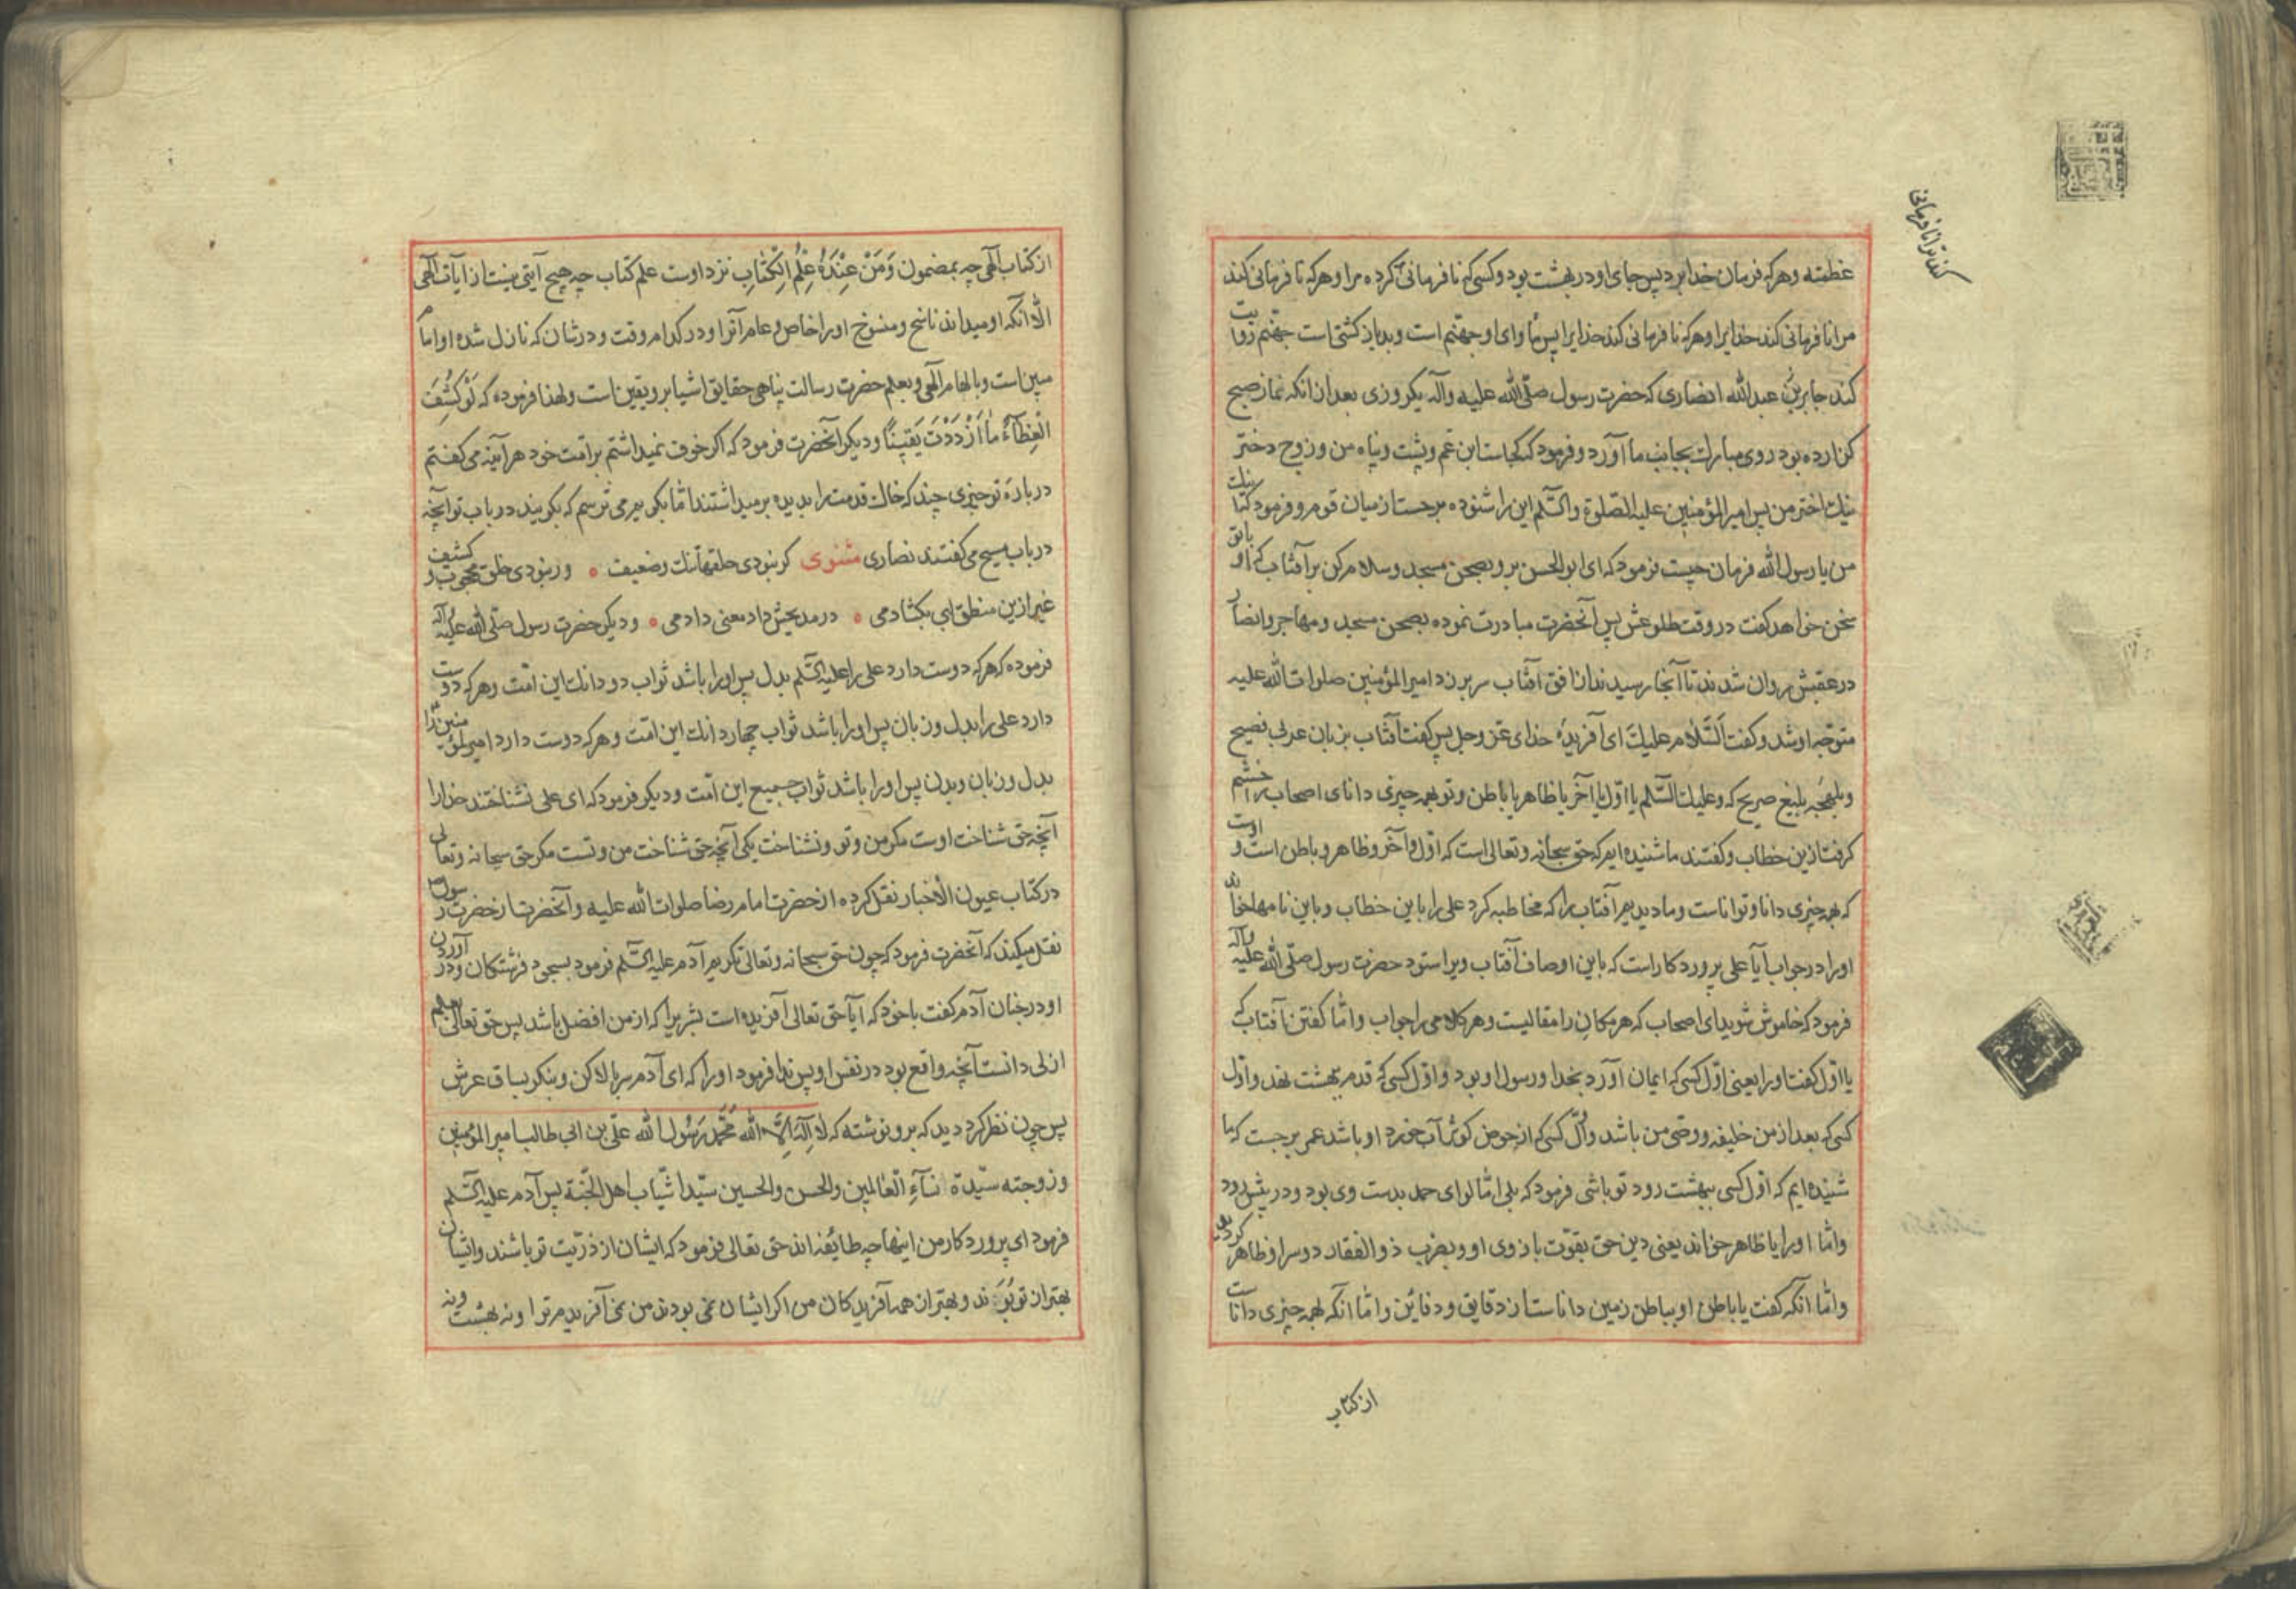 عظمته وهرکه فرمان خدا برد پس جای او در بهشت بود و کسی که نافرمانی کرده مرا وهرکه نافرمانی کند
مرا نافرمانی کند خدایرا وهرکه نافرمانی کند خدایرا پس مأوای او جهنم است وبد باز کشتی است جهنم روایت
کند جابر بن عبدالله انصاری که حضرت رسول صلّی الله علیه وآله یکروزی بعد از انکه نماز صبح
کزارده بود روی مبارک بجانب ما آورد وفرمود که کجاست ابن عم وپشت وپناه من وزوج دختر
نیک اختر من پس امیرالمؤمنین علیه الصّلوة والسّلم این را شنوده برجست از میان قوم وفرمود کتا
من یا رسول الله فرمان چیست فرمود که ای ابوالحسن برو بصحن مسجد وسلام کن برآفتاب که او باتو
سخن خواهد کفت در وقت طلوعش پس آنحضرت مبادرت نموده بصحن مسجد ومهاجر وانصار
در عقبش روان شدند تا آنجا رسیدند از افق آفتاب سر برزد امیرالمؤمنین صلوات الله علیه
متوجّه او شد وکفت السّلام علیک ای آفریدهٔ خدای عزّ وجل پس کفت آفتاب بزبان عربی فصیح
وبلهجهٔ بلیغ صریح که وعلیک السّلم یا اوّل یا آخر یا ظاهر یا باطن وتو بهمه چیزی دانای اصحاب را خشم
کرفت ازین خطاب وکفتند ما شنیده ایم که حق سبحانه وتعالی است که اوّل وآخر وظاهر وباطن است واوست
که بهمه چیزی دانا وتواناست وما دیدیم آفتاب را که مخاطبه کرد علی را باین خطاب وباین نامها خواند
اورا در جواب آیا علی پروردکار است که باین اوصاف آفتاب ویرا ستود حضرت رسول صلّی الله علیه وآله
فرمود که خاموش شوید ای اصحاب که هر مکان را مقالیست وهر کلامی را جواب وامّا کفتن آفتاب که
یا اوّل کفت اورا یعنی اوّل کسی که ایمان آورد بخدا ورسول او بود واوّل کسی که قدم در بهشت نهد واوّل
کسی که بعد از من خلیفه ووصی من باشد واوّل کسی که از حوض کوثر آب خورد او باشد عمر برجست که ما
شنیده ایم که اوّل کسی ببهشت رود تو باشی فرمود که بلی امّا لوای حمد بدست وی بود ودر پیش رود
وامّا اورا یا ظاهر خواند یعنی دین حق بقوّت بازوی او وبضرب ذوالفقار دو سر او ظاهر کردید
وامّا آنکه کفت یا باطن او بباطن زمین داناست از دقایق ودفاین وامّا انکه بهمه چیزی داناست
کند ترا نافرمانی
از کتاب
از کتاب آلهی چه بمضمون وَمَنْ عِنْدَهُ عِلْمُ الْكِتٰابِ نزد اوست علم کتاب چه هیچ آیتی نیست از آیات آلهی
الّا آنکه او میداند ناسخ ومنسوخ اورا خاص وعام آنرا ودر کدام وقت ودر شان که نازل شده او امام
مبین است وبالهام آلهی وبعلم حضرت رسالت پناهی حقایق اشیا برو یقین است ولهذا فرموده که لَوْ كُشِفَ
الْغِطٰآءُ مٰا ازْدَدْتُ يَقِينًا ودیکر آنحضرت فرمود که اکر خوف نمیداشتم بر امّت خود هر آینه می کفتم
در بارهٔ تو چیزی چند که خاک قدمت را بدیده برمیداشتند امّا نکویم می ترسم که بکویند در باب تو آنچه
در باب مسیح می کفتند نصاری مثنوی کر نبودی حلقها تنک وضعیف ٠ ور نبودی خلق محجوب وکثیف
غیر ازین منطق لبی بکشادمی ٠ در مدیحش داد معنی دادمی ٠ ودیکر حضرت رسول صلّی الله علیه وآله
فرموده که هرکه دوست دارد علی را علیه السّلم بدل پس اورا باشد ثواب دو دانک این امّت وهرکه دوست
دارد علی را بدل وزبان پس اورا باشد ثواب چهار دانک این امّت وهرکه دوست دارد امیرالمؤمنین را
بدل وزبان وبدن پس اورا باشد ثواب جمیع این امّت ودیکر فرمود که ای علی نشناختند خدارا
آنچه حق شناخت اوست مکر من وتو ونشناخت یکی آنچه حق شناخت من وتست مکر حق سبحانه وتعالی
در کتاب عیون الاخبار نقل کرده از حضرت امام رضا صلوات الله علیه وآنحضرت از حضرت رسول
نقل میکند که آنحضرت فرمود که چون حق سبحانه وتعالی تکریم آدم علیه السّلم فرمود بسجود فرشتکان ودر آوردن
او در جنان آدم کفت با خود که آیا حق تعالی آفریده است بشریرا که از من افضل باشد پس حق تعالی بعلم
ازلی دانست آنچه واقع بود در نفس او پس ندا فرمود اورا که ای آدم سر بالا کن وبنکر بساق عرش
پس چون نظر کرد دید که برو نوشته که لا اله الّا الله محمّد رسول الله علیّ بن ابی طالب امیر المؤمنین
وزوجته سیّدة نسآء العالمین والحسن والحسین سیّدا شباب اهل الجنّة پس آدم علیه السّلم
فرمود ای پروردکار من اینها چه طایفه اند حق تعالی فرمود که ایشان از ذرّیت تو باشند وایشان
بهتر از تو بوند وبهتر از همه آفریدکان من اکر ایشان نمی بودند من نمی آفریدم ترا ونه بهشت ونه